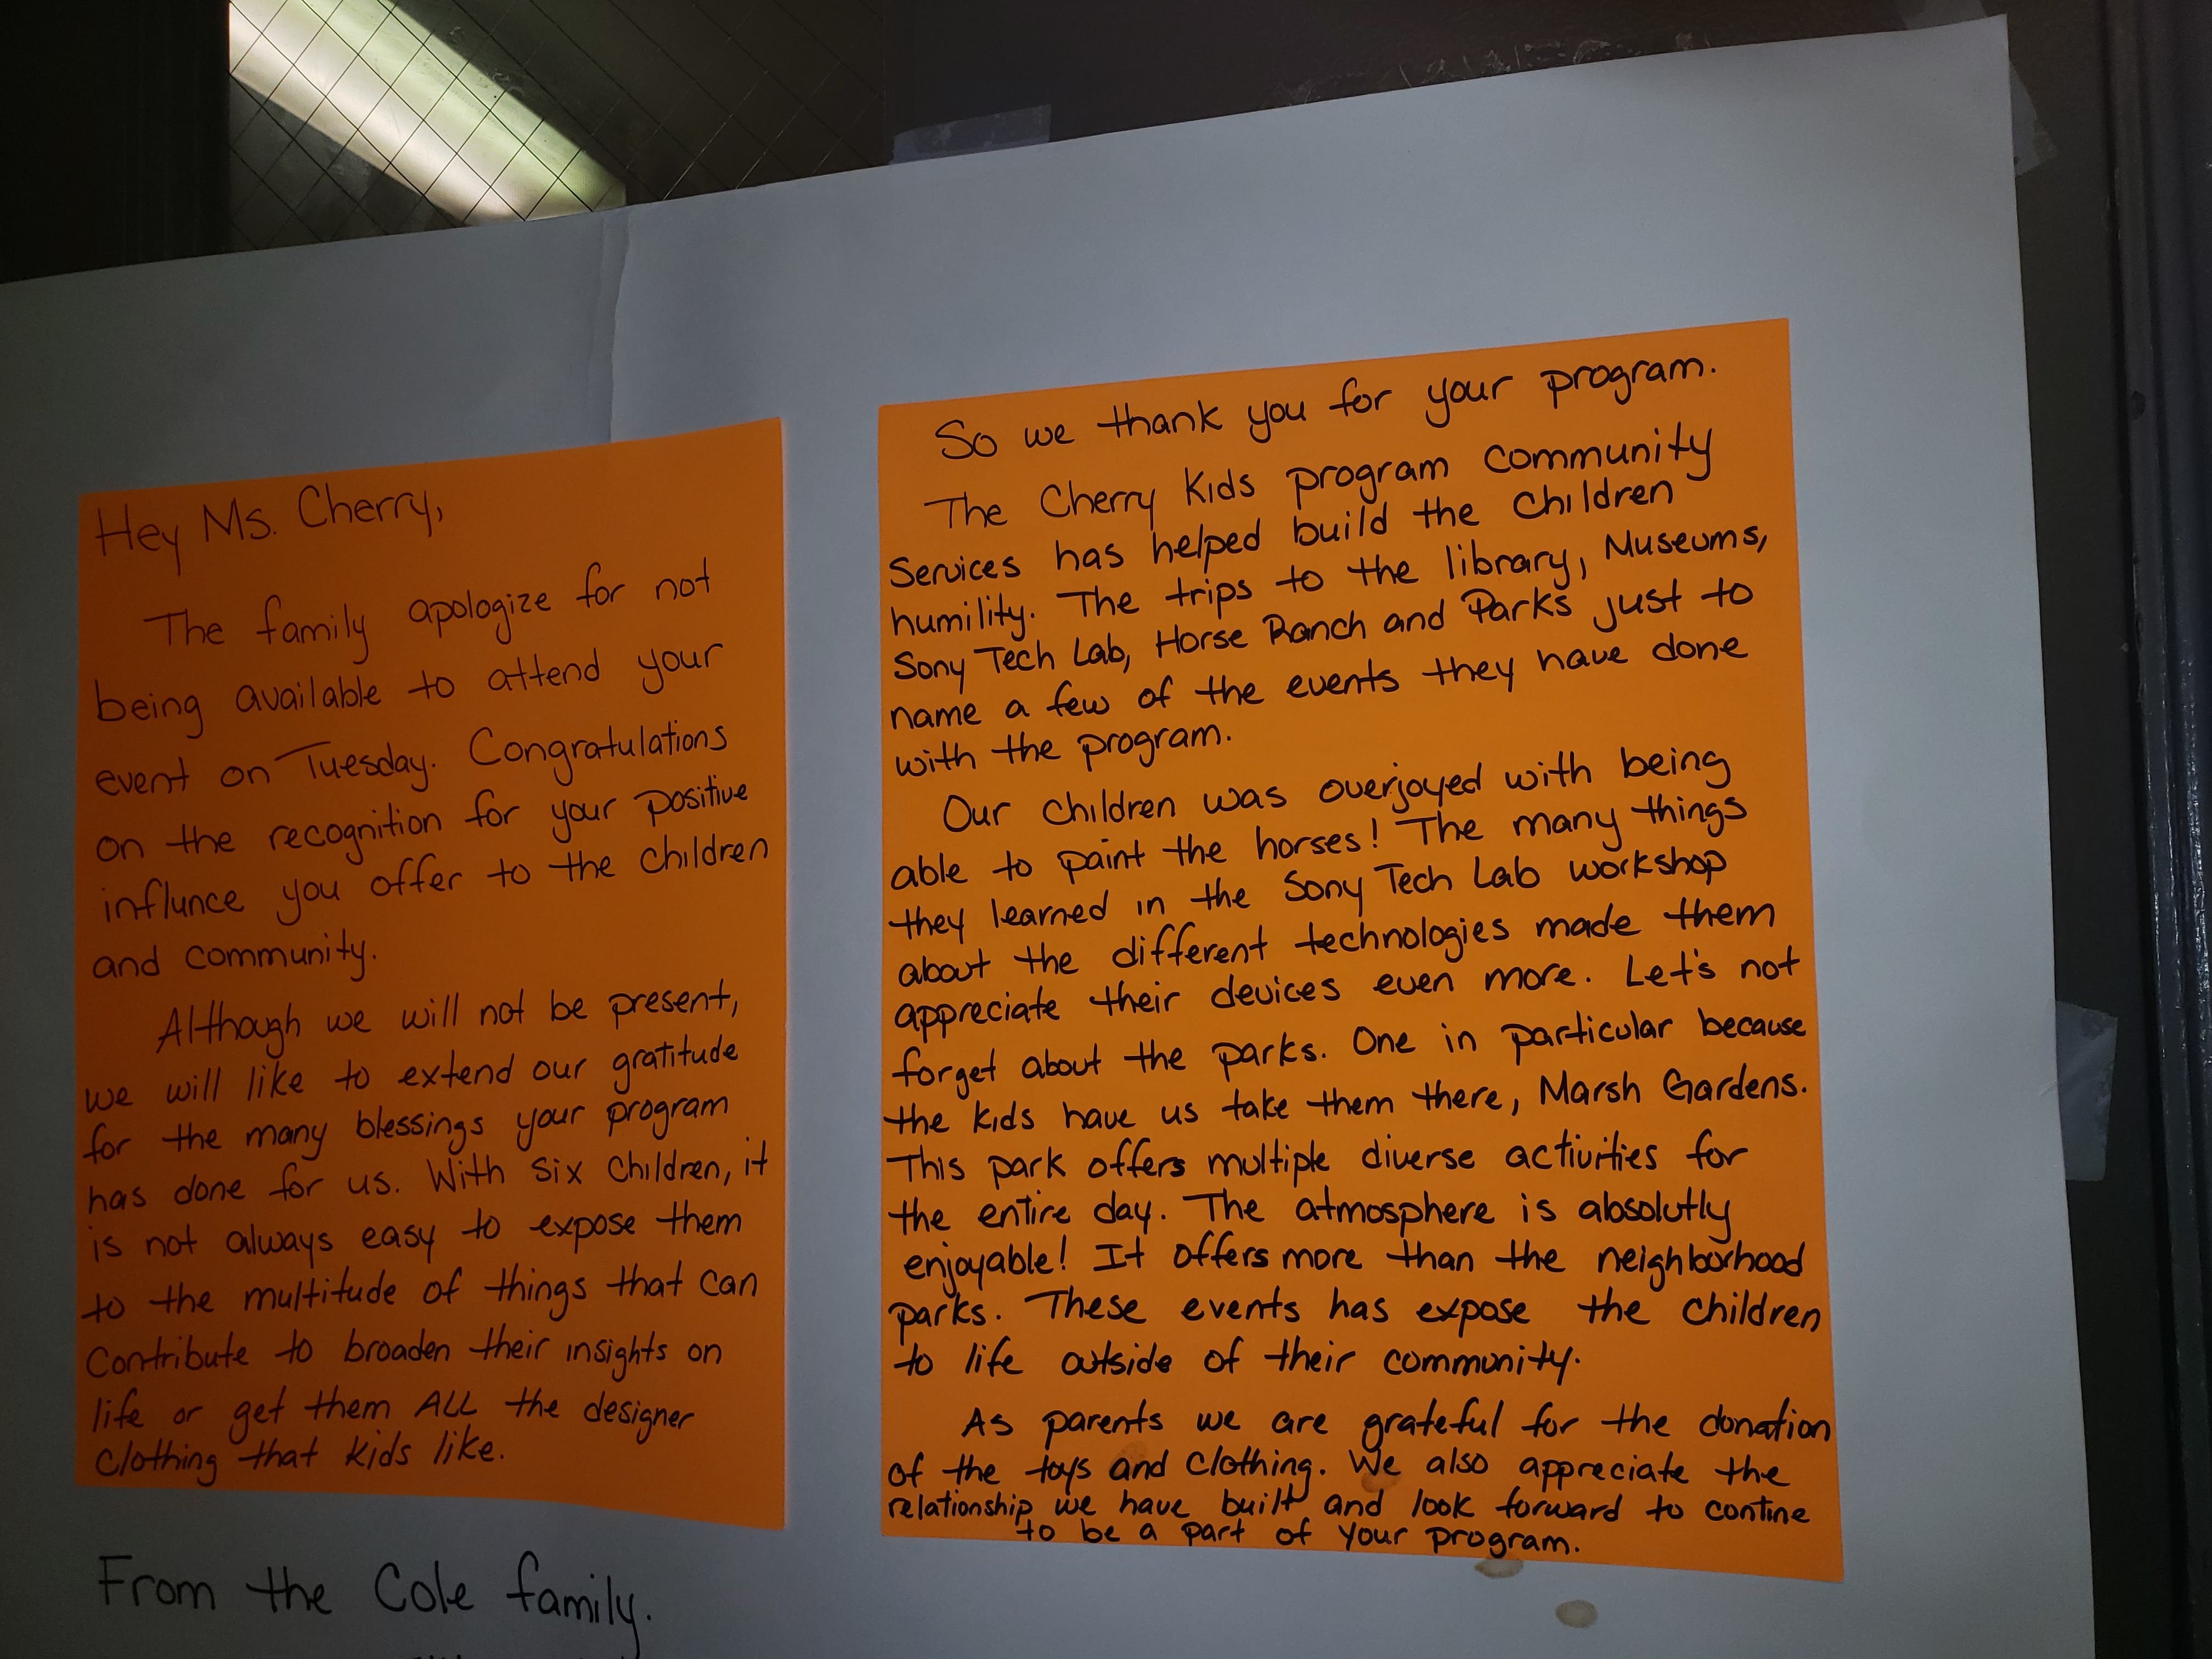 Hey Ms. Cherry,
The family apologize for not
being available to attend your
event on Tuesday. Congratulations
on the recognition for your positive
influnce you offer to the children
and community.
Although we will not be present,
we will like to extend our gratitude
for the many blessings your program
has done for us. With six children, it
is not always easy to expose them
to the multitude of things that can
contribute to broaden their insights on
life or get them ALL the designer
clothing that kids like.
From the Cole family.
So we thank you for your program.
The Cherry Kids program community
services has helped build the children
humility. The trips to the library, Museums,
Sony Tech Lab, Horse Ranch and Parks just to
name a few of the events they have done
with the program.
Our children was overjoyed with being
able to paint the horses! The many things
they learned in the Sony Tech Lab workshop
about the different technologies made them
appreciate their devices even more. Let's not
forget about the parks. One in particular because
the kids have us take them there, Marsh Gardens.
This park offers multiple diverse activities for
the entire day. The atmosphere is absolutly
enjoyable! It offers more than the neighborhood
parks. These events has expose the children
to life outside of their community.
As parents we are grateful for the donation
of the toys and clothing. We also appreciate the
relationship we have built and look forward to contine
to be a part of your program.